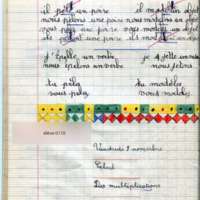 il pèle une poire il modèle un objet
nous pelons une poire nous modelons un objet
vous pelez une poire vous modelez un objet
ils pèlent une poire ils modèlent
j'épelle un verbe je jette
nous épelons un verbe nous jetons
tu pèles tu modèles
vous pelez vous modelez
élève 0110
Vendredi 9 novembre
Calcul
Les multiplications